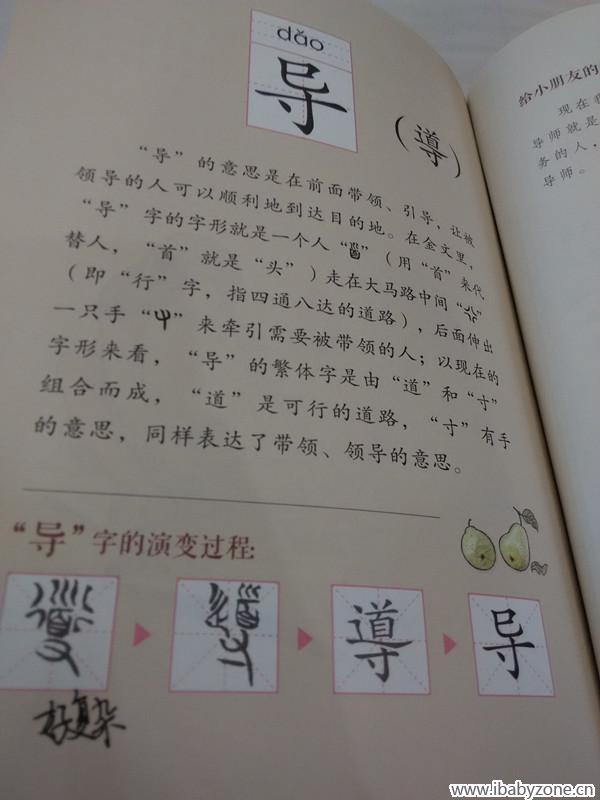 dǎo
导
(導)
“导”的意思是在前面带领、引导，让被
领导的人可以顺利地到达目的地。在金文里，
“导”字的字形就是一个人“”（用“首”来代
替人，“首”就是“头”）走在大马路中间“”
（即“行”字，指四通八达的道路），后面伸出
一只手“”来牵引需要被带领的人；以现在的
字形来看，“导”的繁体字是由“道”和“寸”
组合而成，“道”是可行的道路，“寸”有手
的意思，同样表达了带领、领导的意思。
“导”字的演变过程:
導 导
好复杂
给小朋友的
现在我
导师就是
务的人，
导师。
www.ibabyzone.cn